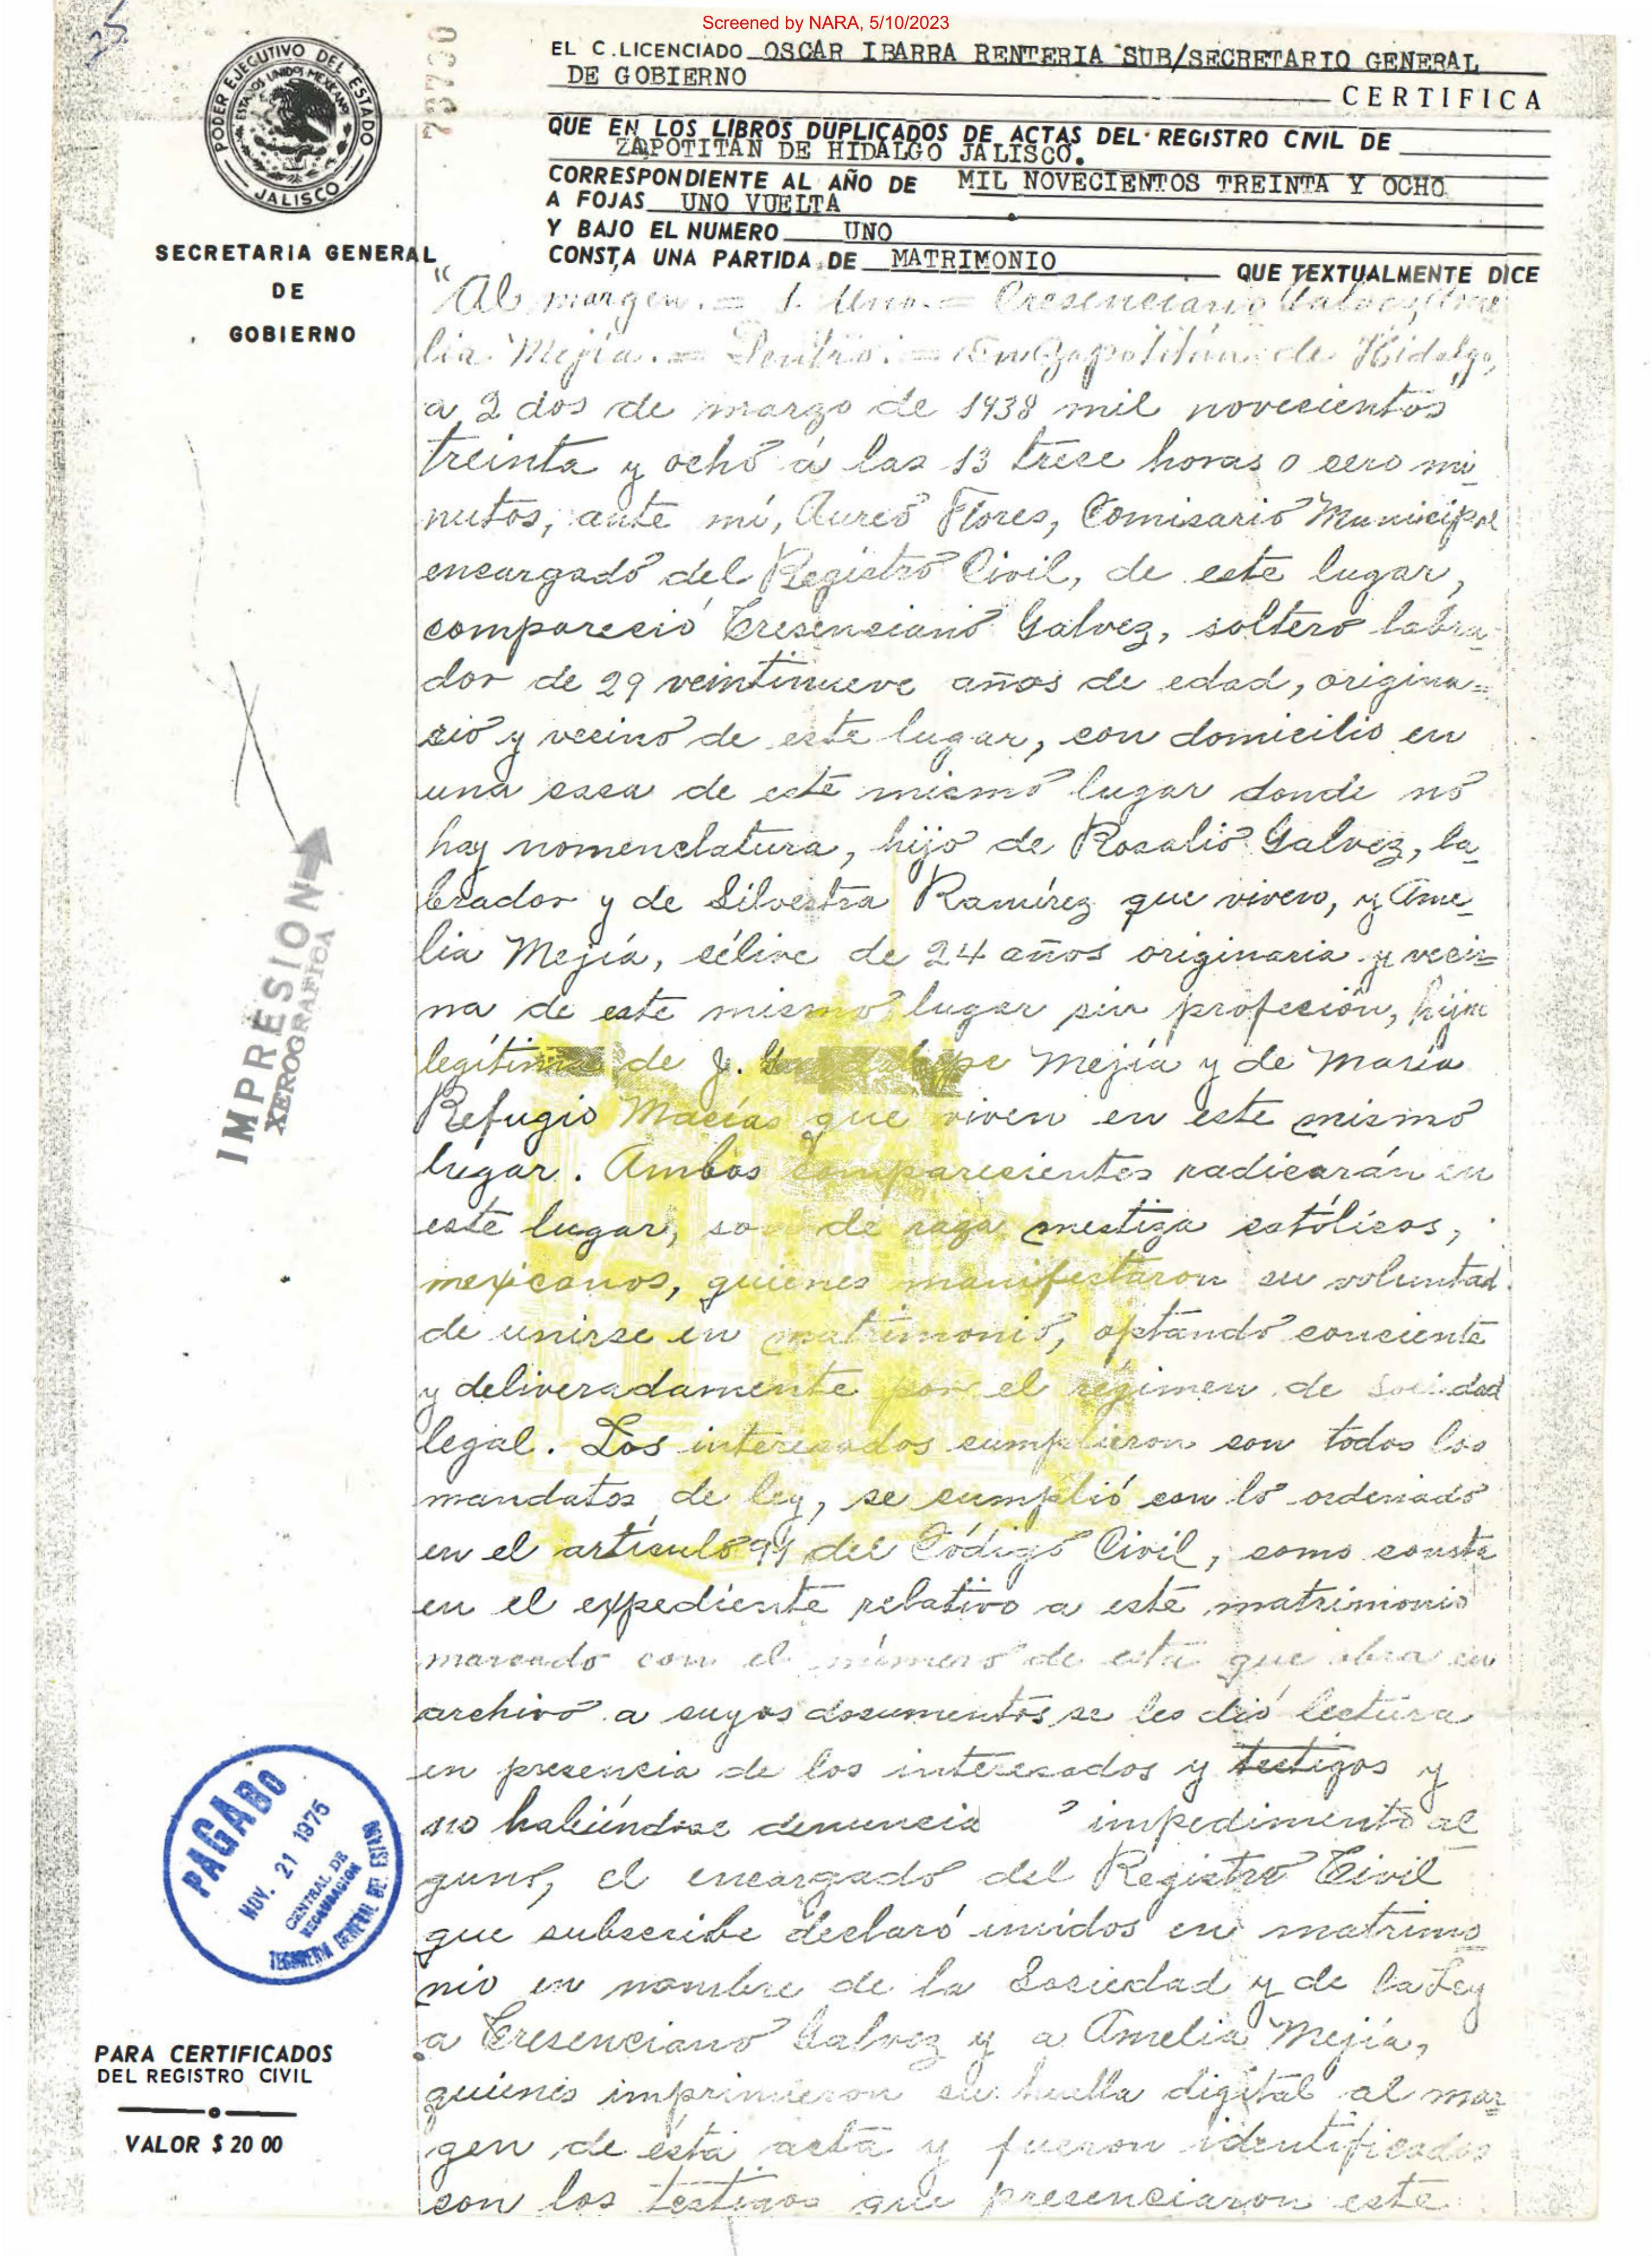 Screened by NARA, 5/10/2023
25
78730
PODER EJECUTIVO DEL ESTADO
ESTADOS UNIDOS MEXICANOS
JALISCO
SECRETARIA GENERAL
DE
GOBIERNO
EL C. LICENCIADO OSCAR IBARRA RENTERIA SUB/SECRETARIO GENERAL
DE GOBIERNO
CERTIFICA
QUE EN LOS LIBROS DUPLICADOS DE ACTAS DEL REGISTRO CIVIL DE
ZAPOTITAN DE HIDALGO JALISCO.
CORRESPONDIENTE AL AÑO DE MIL NOVECIENTOS TREINTA Y OCHO
A FOJAS UNO VUELTA
Y BAJO EL NUMERO UNO
CONSTA UNA PARTIDA DE MATRIMONIO
QUE TEXTUALMENTE DICE
"Al margen.= 1. Uno.= Cresenciano Galvez, Ame
lia Mejía.= Dentro:= En Zapotitán de Hidalgo,
a 2 dos de marzo de 1938 mil novecientos
treinta y ocho a las 13 trece horas 0 cero mi
nutos, ante mí, Aureo Flores, Comisario Municipal
encargado del Registro Civil, de este lugar,
compareció Cresenciano Galvez, soltero labra
dor de 29 veintinueve años de edad, origina=
rio y vecino de este lugar, con domicilio en
una casa de este mismo lugar donde no
hay nomenclatura, hijo de Rosalio Galvez, la
brador y de Silvestra Ramírez que viven, y Ame
lia Mejía, célive de 24 años originaria y veci=
na de este mismo lugar sin profeción, hija
legítima de J. Mejía y de María
Refugio Macías que viven en este mismo
lugar. Ambos comparecientes radicarán en
este lugar, son de raza mestiza católicos,
mexicanos, quienes manifestaron su voluntad
de unirse en matrimonio, optando conciente
y deliveradamente por el régimen de Sociedad
legal. Los interesados cumplieron con todos los
mandatos de ley, se cumplió con lo ordenado
en el artículo 94 del Código Civil, como consta
en el expediente relativo a este matrimonio
marcado con el número de esta que obra en
archivo a cuyos documentos se les dió lectura
en presencia de los interesados y testigos y
no habiéndose denuncia impedimento al
guno, el encargado del Registro Civil
que subscribe declaró unidos en matrimo
nio en nombre de la Sociedad y de la Ley
a Cresenciano Galvez y a Amelia Mejía,
quienes imprimieron su huella digital al mar
gen de esta acta y fueron identificados
con los testigos que presenciaron este
IMPRESION
XEROGRAFICA
PAGADO
NOV. 21 1975
CENTRAL DE
RECAUDACION
TESORERIA GENERAL DEL ESTADO
PARA CERTIFICADOS
DEL REGISTRO CIVIL
VALOR $ 20 00